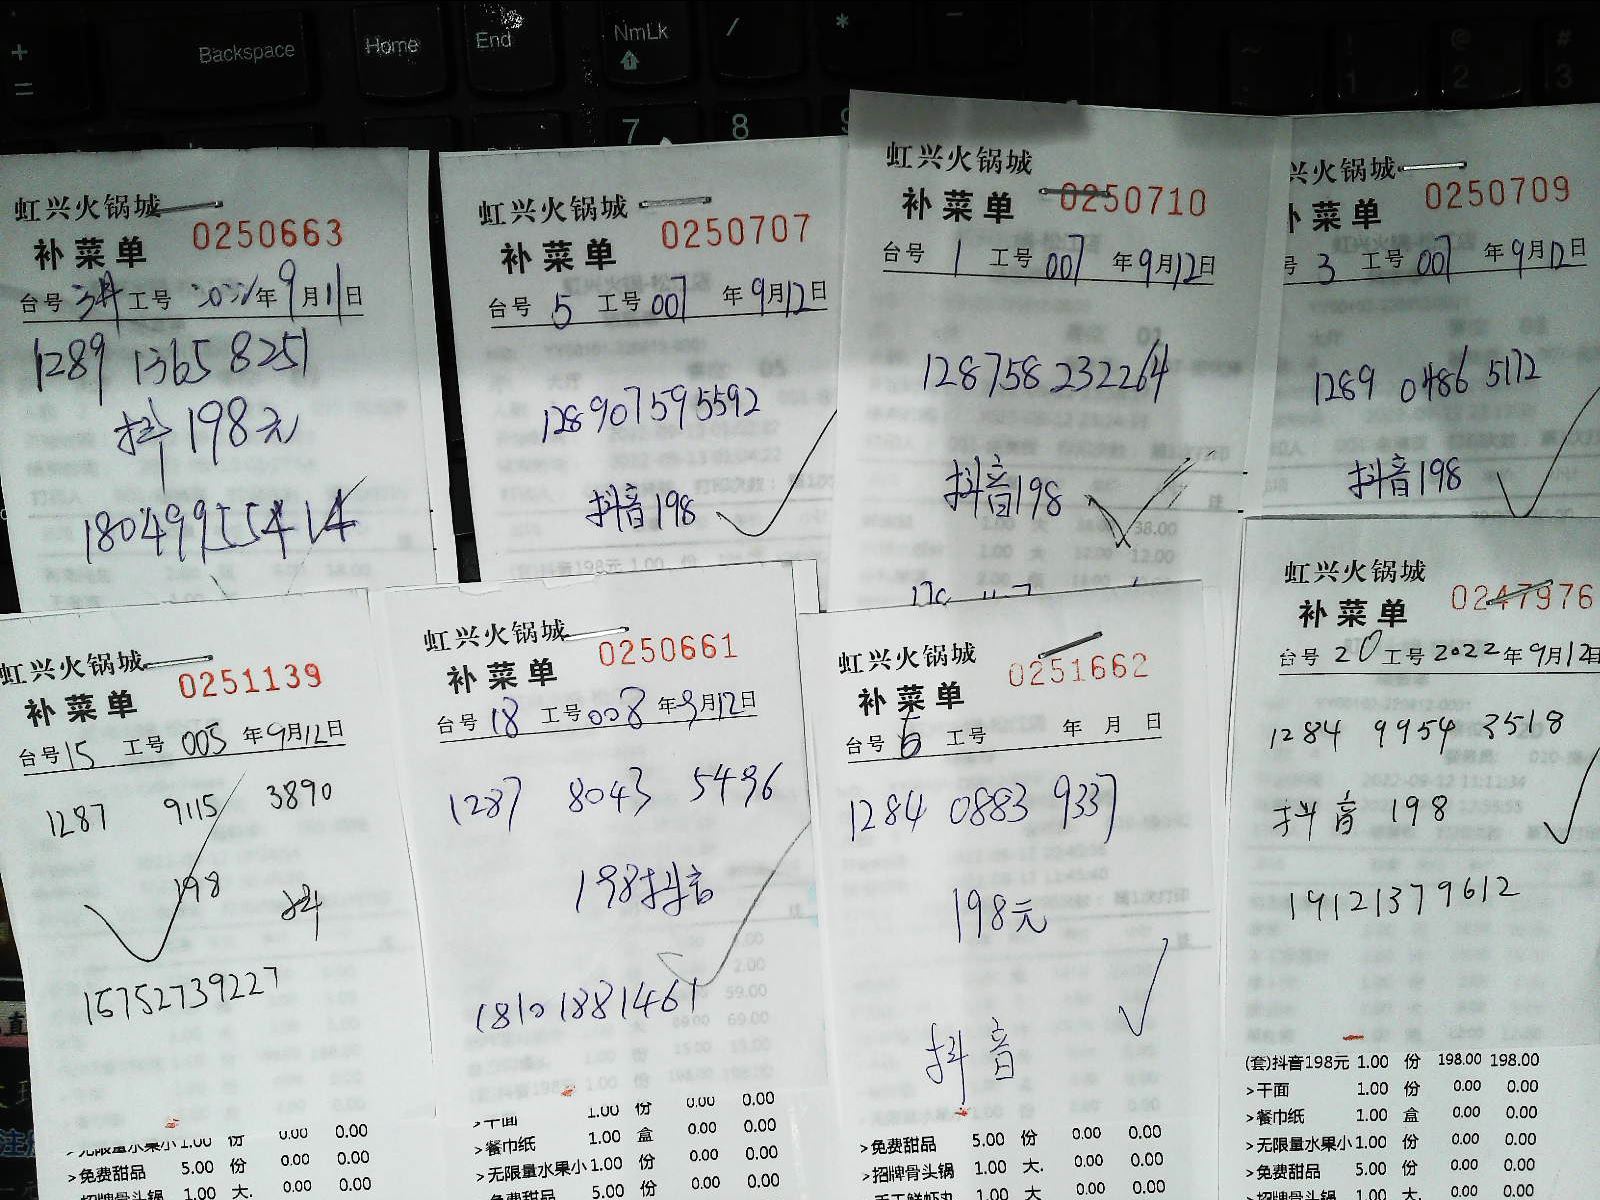 Backspace
Home
End
NmLk
7
8
9
虹兴火锅城
补菜单 0250663
台号 工号 年9月11日
1289 1365 8251
抖198元
18049955414
虹兴火锅城
补菜单 0250707
台号 5 工号 007 年9月12日
128907595592
抖音198
虹兴火锅城
补菜单 0250710
台号 1 工号 007 年9月12日
128758232264
抖音198
兴火锅城
菜单 0250709
号 3 工号 007 年9月12日
1289 0486 5172
抖音198
虹兴火锅城
补菜单 0251139
台号 15 工号 005 年9月12日
1287 9115 3890
198 抖
15752739227
>无限量水果小 1.00 份 0.00 0.00
>免费甜品 5.00 份 0.00 0.00
招牌骨头锅 1.00 大. 0.00 0.00
虹兴火锅城
补菜单 0250661
台号 18 工号 008 年9月12日
1287 8043 5496
198抖音
18101881461
>干面 1.00 份 0.00 0.00
>餐巾纸 1.00 盒 0.00 0.00
>无限量水果小 1.00 份 0.00 0.00
免费甜品 5.00 份 0.00 0.00
虹兴火锅城
补菜单 0251662
台号 6 工号 年 月 日
1284 0883 9337
198元
抖音
>免费甜品 5.00 份 0.00 0.00
>招牌骨头锅 1.00 大. 0.00 0.00
手工鲜虾丸 1.00 大 0.00 0.00
虹兴火锅城
补菜单 0247976
台号 20 工号 2022年9月12日
1284 9954 3518
抖音 198
19121379612
(套)抖音198元 1.00 份 198.00 198.00
>干面 1.00 份 0.00 0.00
>餐巾纸 1.00 盒 0.00 0.00
>无限量水果小 1.00 份 0.00 0.00
>免费甜品 5.00 份 0.00 0.00
招牌骨头锅 1.00 大. 0.00 0.00